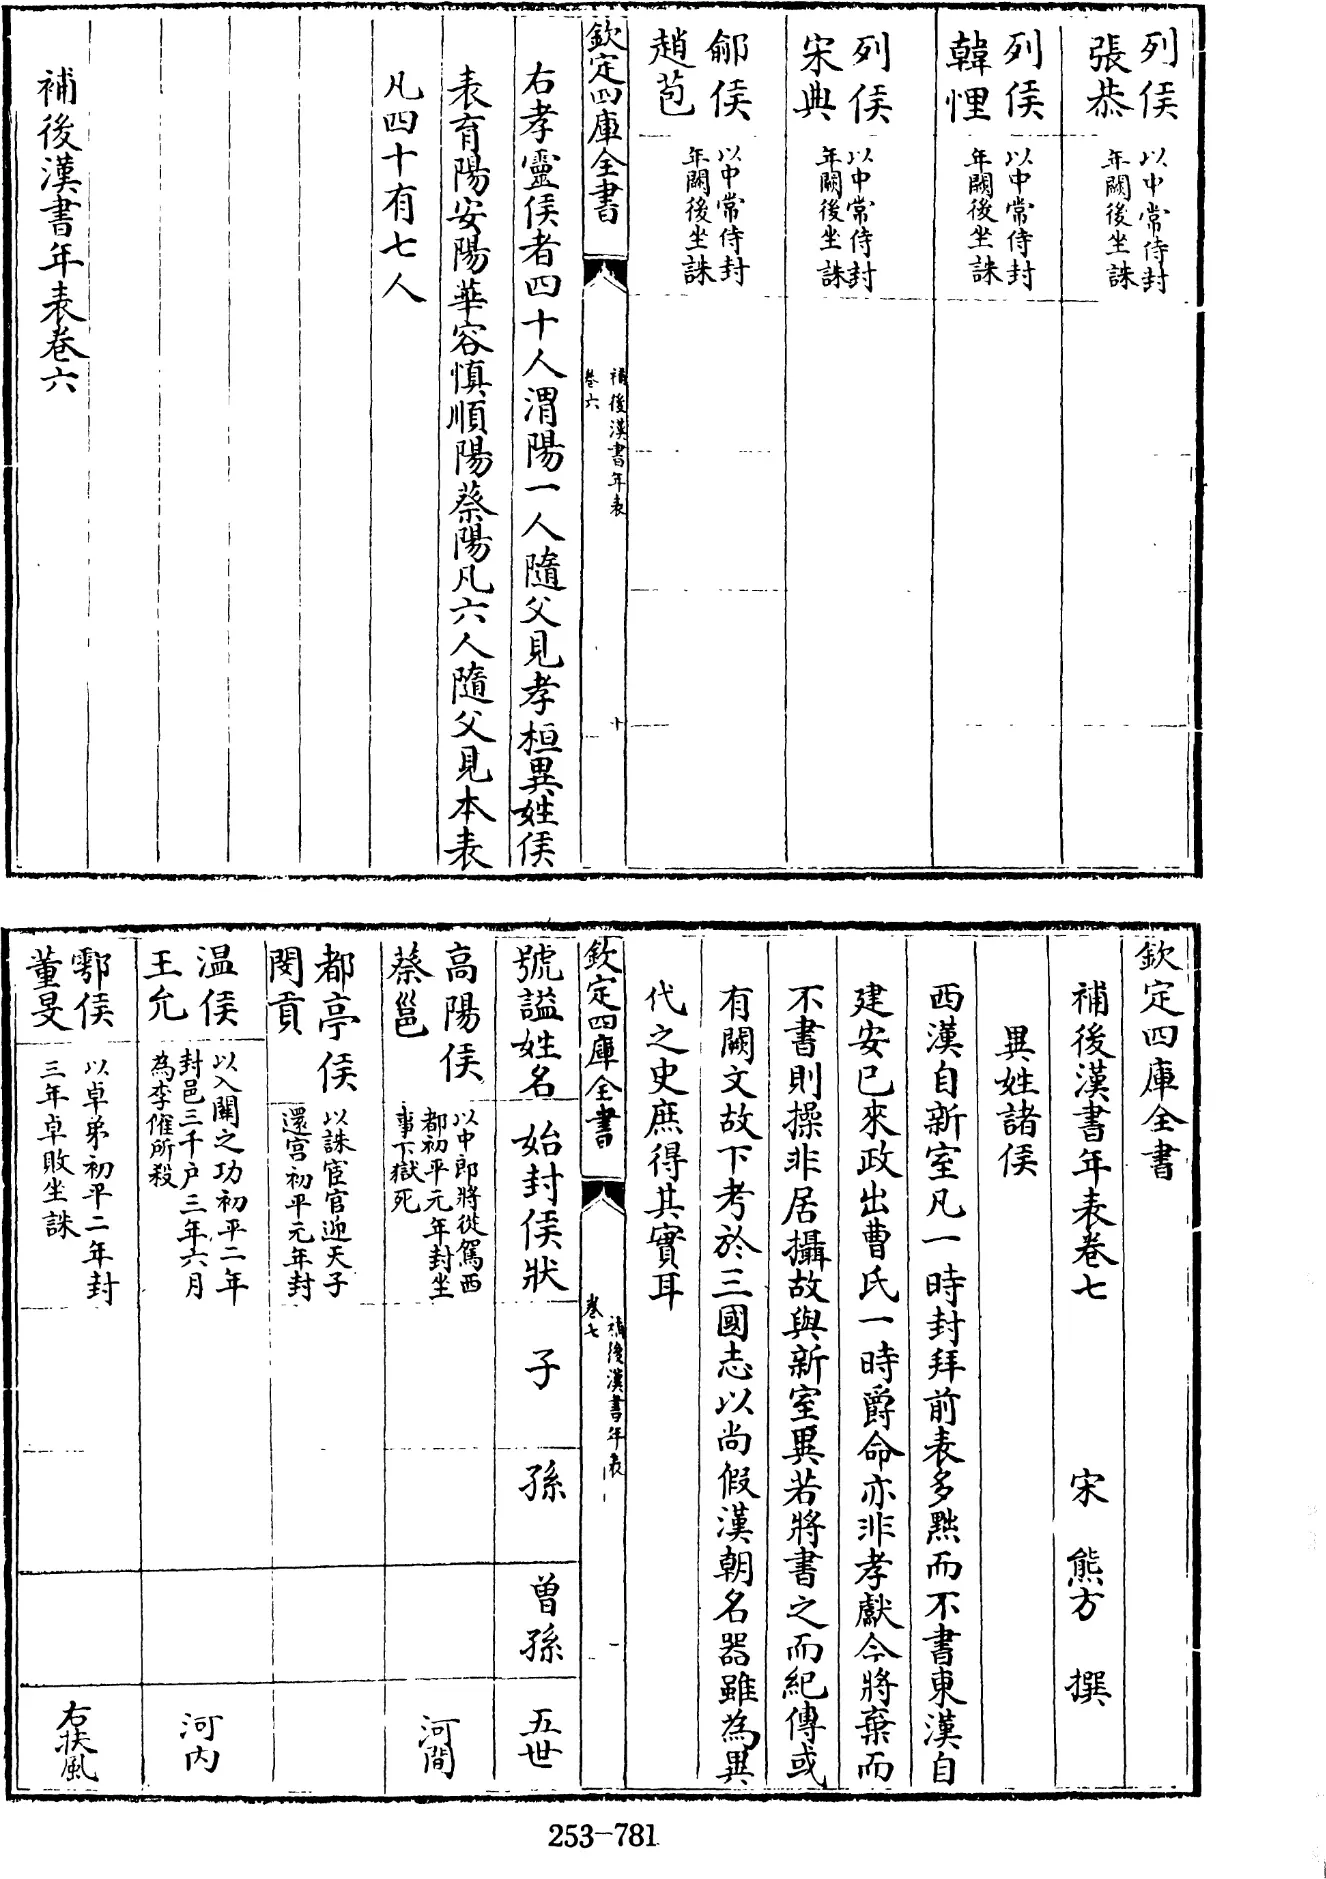 列侯張恭
以中常侍封
年闕後坐誅
列侯韓悝
以中常侍封
年闕後坐誅
列侯宋典
以中常侍封
年闕後坐誅
鄃侯趙苞
以中常侍封
年闕後坐誅
欽定四庫全書
補後漢書年表
卷六
十
右孝靈侯者四十人渭陽一人隨父見孝桓異姓侯
表育陽安陽華容慎順陽蔡陽凡六人隨父見本表
凡四十有七人
補後漢書年表卷六
欽定四庫全書
補後漢書年表卷七
宋 熊方 撰
異姓諸侯
西漢自新室凡一時封拜前表多黜而不書東漢自
建安已來政出曹氏一時爵命亦非孝獻今將棄而
不書則操非居攝故與新室異若將書之而紀傳或
有闕文故下考於三國志以尚假漢朝名器雖為異
代之史庶得其實耳
欽定四庫全書
補後漢書年表
卷七
一
號諡姓名 始封侯狀 子 孫 曾孫 五世
高陽侯蔡邕
以中郎將從駕西
都初平元年封坐
事下獄死
河間
都亭侯閔貢
以誅宦官迎天子
還宮初平元年封
温侯王允
以入關之功初平二年
封邑三千戶三年六月
為李傕所殺
河內
鄠侯董旻
以卓弟初平二年封
三年卓敗坐誅
右扶風
253-781